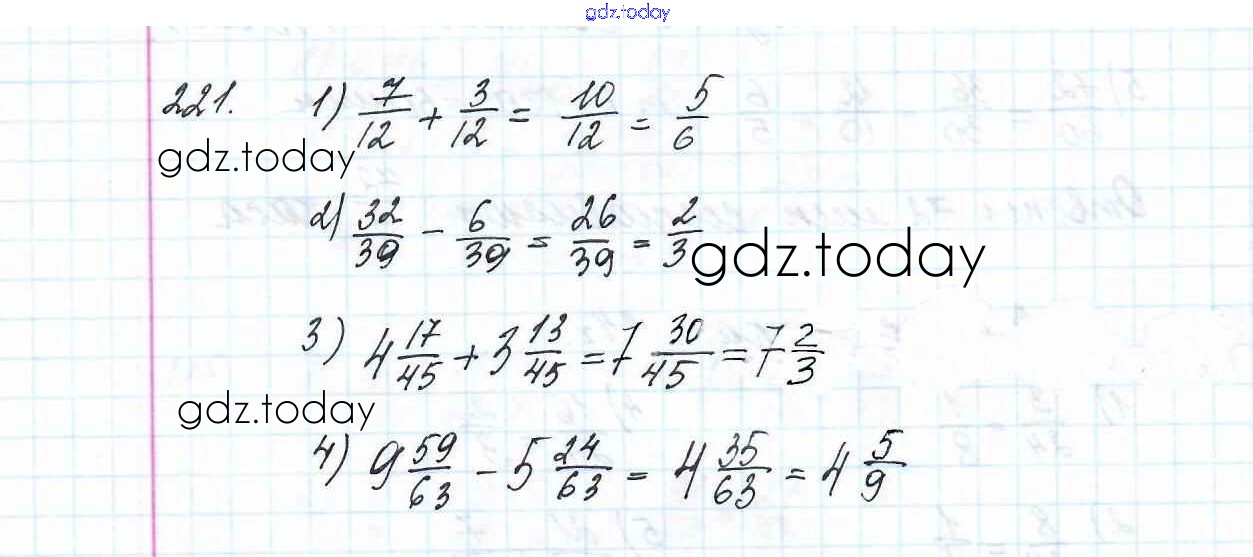 gdz.today
221. 1) 7/12 + 3/12 = 10/12 = 5/6
gdz.today
2) 32/39 - 6/39 = 26/39 = 2/3
gdz.today
3) 4 17/45 + 3 13/45 = 7 30/45 = 7 2/3
gdz.today
4) 9 59/63 - 5 24/63 = 4 35/63 = 4 5/9